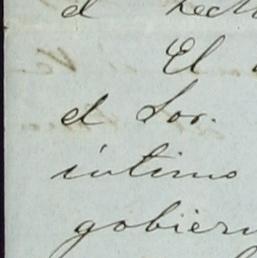 el
El
el Sor.
íntimo
gobiern